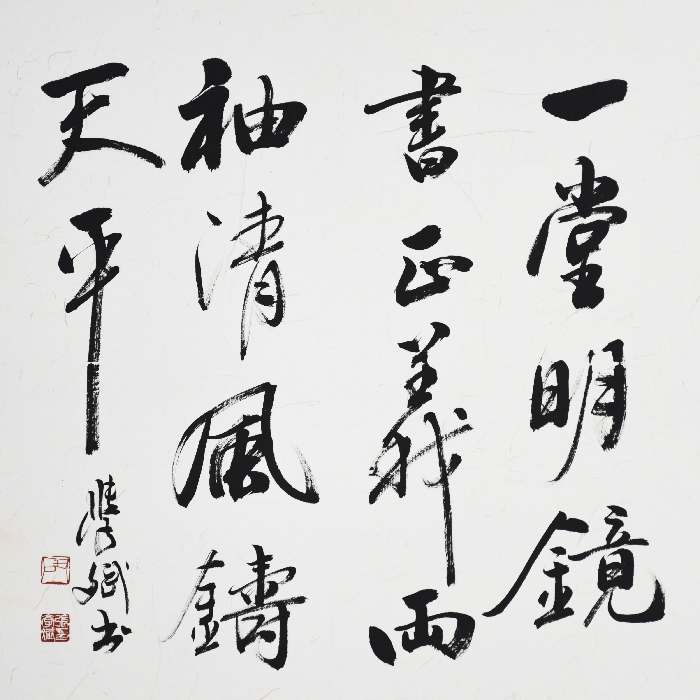 一堂明鏡
書正義兩
袖清風鑄
天平
斌书